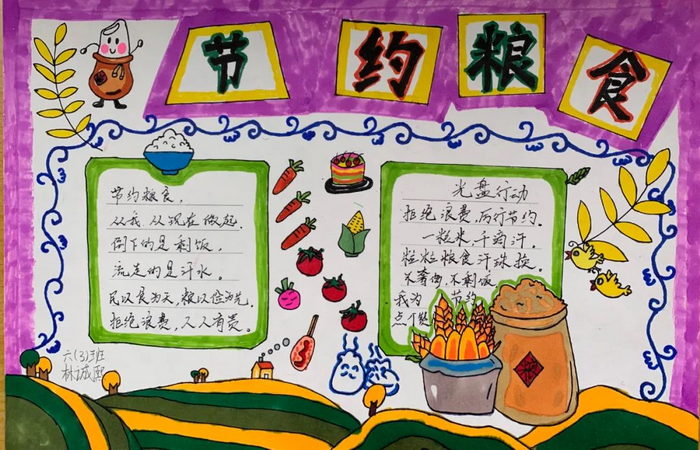 节约粮食
节约粮食,
从我、从现在做起.
倒下的是剩饭,
流走的是汗水.
民以食为天,粮以俭为先.
拒绝浪费,人人有责.
光盘行动
拒绝浪费,厉行节约.
一粒米,千滴汗,
粒粒粮食汗珠换
不奢面,不剩饭
我为 节约
点个赞
六(3)班
林